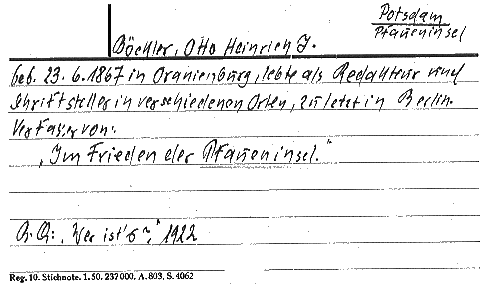 Potsdam
Pfaueninsel
Böckler, Otto Heinrich J.
geb. 23. 6. 1867 in Oranienburg, lebte als Redakteur und
Schriftsteller in verschiedenen Orten, zuletzt in Berlin.
Verfasser von:
„Im Frieden der Pfaueninsel."
„Wer ist's?" 1922
Reg. 10. Stichnote. 1. 50. 237000. A. 803, S. 4062